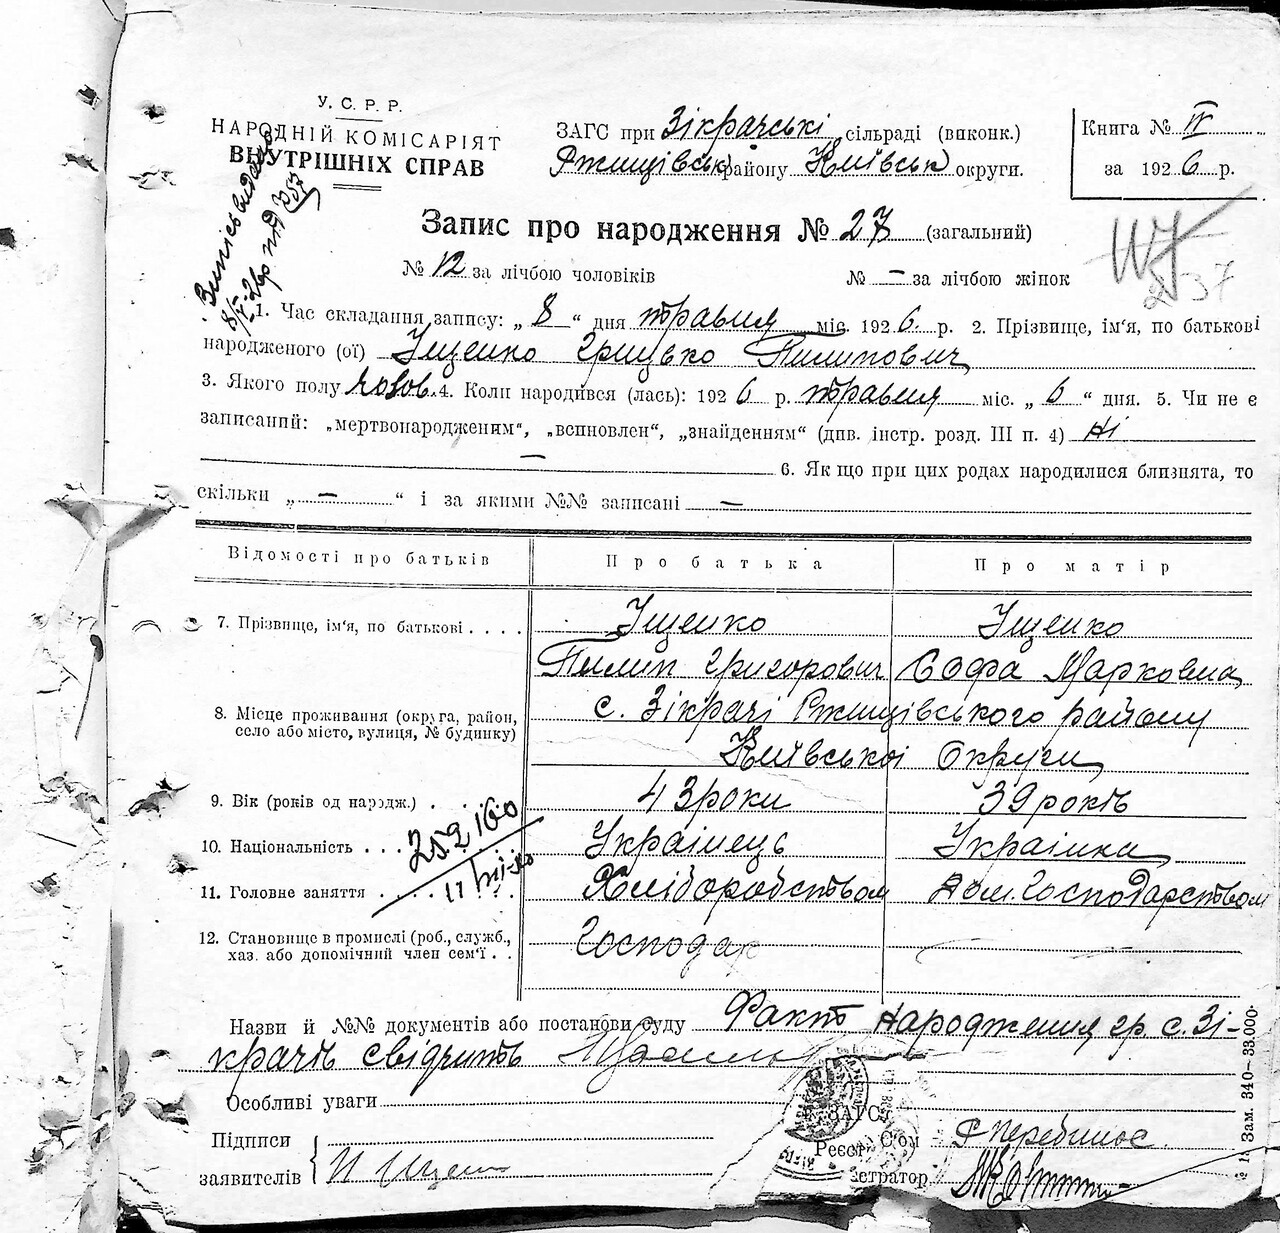 У.С.Р.Р.
НАРОДНІЙ КОМІСАРІЯТ
ВНУТРІШНІХ СПРАВ
ЗАГС при Зікрачські сільраді (виконк.)
Ржищівськ району Київськ округи.
Книга № IV
за 1926 р.
Запис про народження № 27 (загальний)
№ 12 за лічбою чоловіків № – за лічбою жінок
1. Час складання запису: „ 8 “ дня травня міс. 1926. р. 2. Прізвище, ім'я, по батькові
народженого (ої) Іщенко Грицько Пилипович
3. Якого полу чолов. 4. Коли народився (лась): 1926 р. травня міс. „ 6 “ дня. 5. Чи не є
записаний: „мертвонародженим“, „вспновлен“, „знайденням“ (дпв. інстр. розд. III п. 4) Ні
– 6. Як що при цих родах народилися близнята, то
скільки „ – “ і за якими №№ записані –
Відомості про батьків Про батька Про матір
7. Прізвище, ім'я, по батькові . . . . Іщенко Іщенко
Пилип Григорович Софа Марковна
8. Місце проживання (округа, район, с. Зікрачі Ржищівського району
село або місто, вулиця, № будинку)
Київської Округи
9. Вік (років од народж.) . . . . 43 роки 39 років
252160
10. Національність . . . Українець Українка
11. Головне заняття . . . . . Хліборобством Дом. Господарством
12. Становище в промислі (роб., служб., Господар –
хаз. або допомічний член сем'ї . .
Назви й №№ документів або постанови суду Факт народження гр. с. Зі-
крачів свідчить
Особливі уваги
Підписи
заявителів П Іщен
ЗАГС
Реєст
етратор
№ 1. Зам. 340–33.000